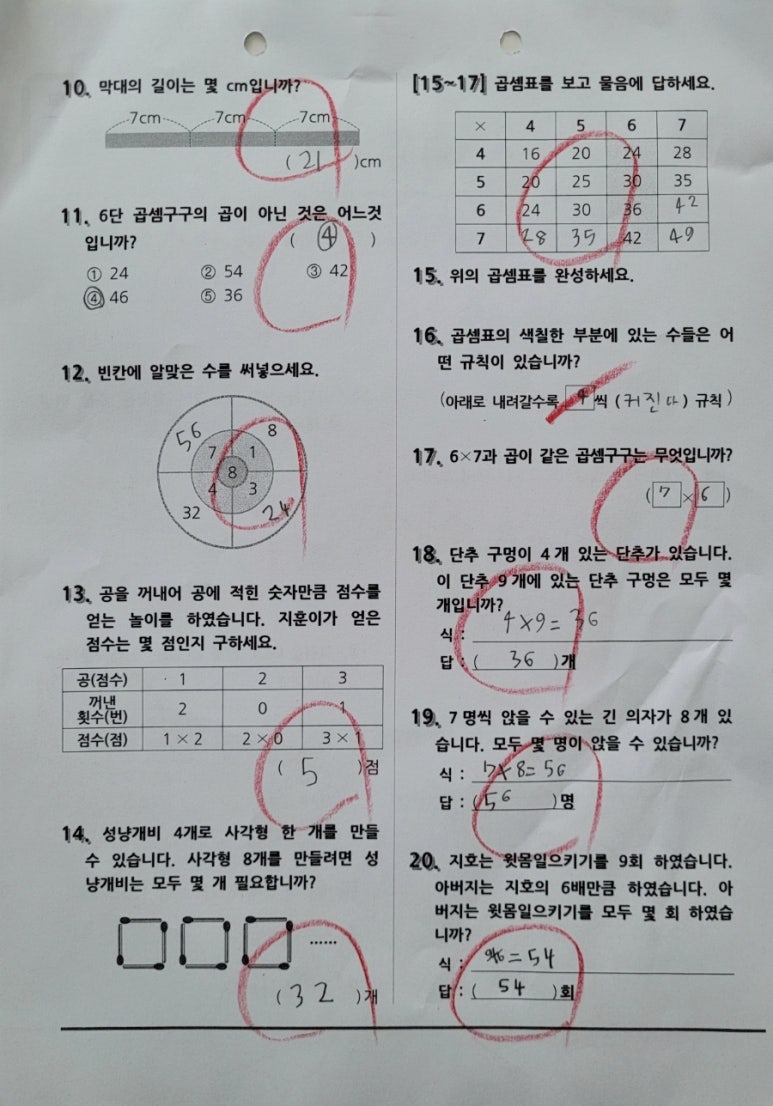 10. 막대의 길이는 몇 cm입니까?
7cm 7cm 7cm
( 21 )cm
11. 6단 곱셈구구의 곱이 아닌 것은 어느것
입니까? ( ④ )
① 24 ② 54 ③ 42
④ 46 ⑤ 36
12. 빈칸에 알맞은 수를 써넣으세요.
56 8
7 1
8
4 3
32 24
13. 공을 꺼내어 공에 적힌 숫자만큼 점수를
얻는 놀이를 하였습니다. 지훈이가 얻은
점수는 몇 점인지 구하세요.
공(점수) 1 2 3
꺼낸
횟수(번) 2 0 1
점수(점) 1×2 2×0 3×1
( 5 )점
14. 성냥개비 4개로 사각형 한 개를 만들
수 있습니다. 사각형 8개를 만들려면 성
냥개비는 모두 몇 개 필요합니까?
......
( 32 )개
[15~17] 곱셈표를 보고 물음에 답하세요.
× 4 5 6 7
4 16 20 24 28
5 20 25 30 35
6 24 30 36 42
7 28 35 42 49
15. 위의 곱셈표를 완성하세요.
16. 곱셈표의 색칠한 부분에 있는 수들은 어
떤 규칙이 있습니까?
(아래로 내려갈수록 씩 (커진다) 규칙)
17. 6×7과 곱이 같은 곱셈구구는 무엇입니까?
(7×6)
18. 단추 구멍이 4개 있는 단추가 있습니다.
이 단추 9개에 있는 단추 구멍은 모두 몇
개입니까?
식 : 4×9=36
답 : ( 36 )개
19. 7명씩 앉을 수 있는 긴 의자가 8개 있
습니다. 모두 몇 명이 앉을 수 있습니까?
식 : 7×8=56
답 : (56 )명
20. 지호는 윗몸일으키기를 9회 하였습니다.
아버지는 지호의 6배만큼 하였습니다. 아
버지는 윗몸일으키기를 모두 몇 회 하였습
니까?
식 : 9×6=54
답 : ( 54 )회